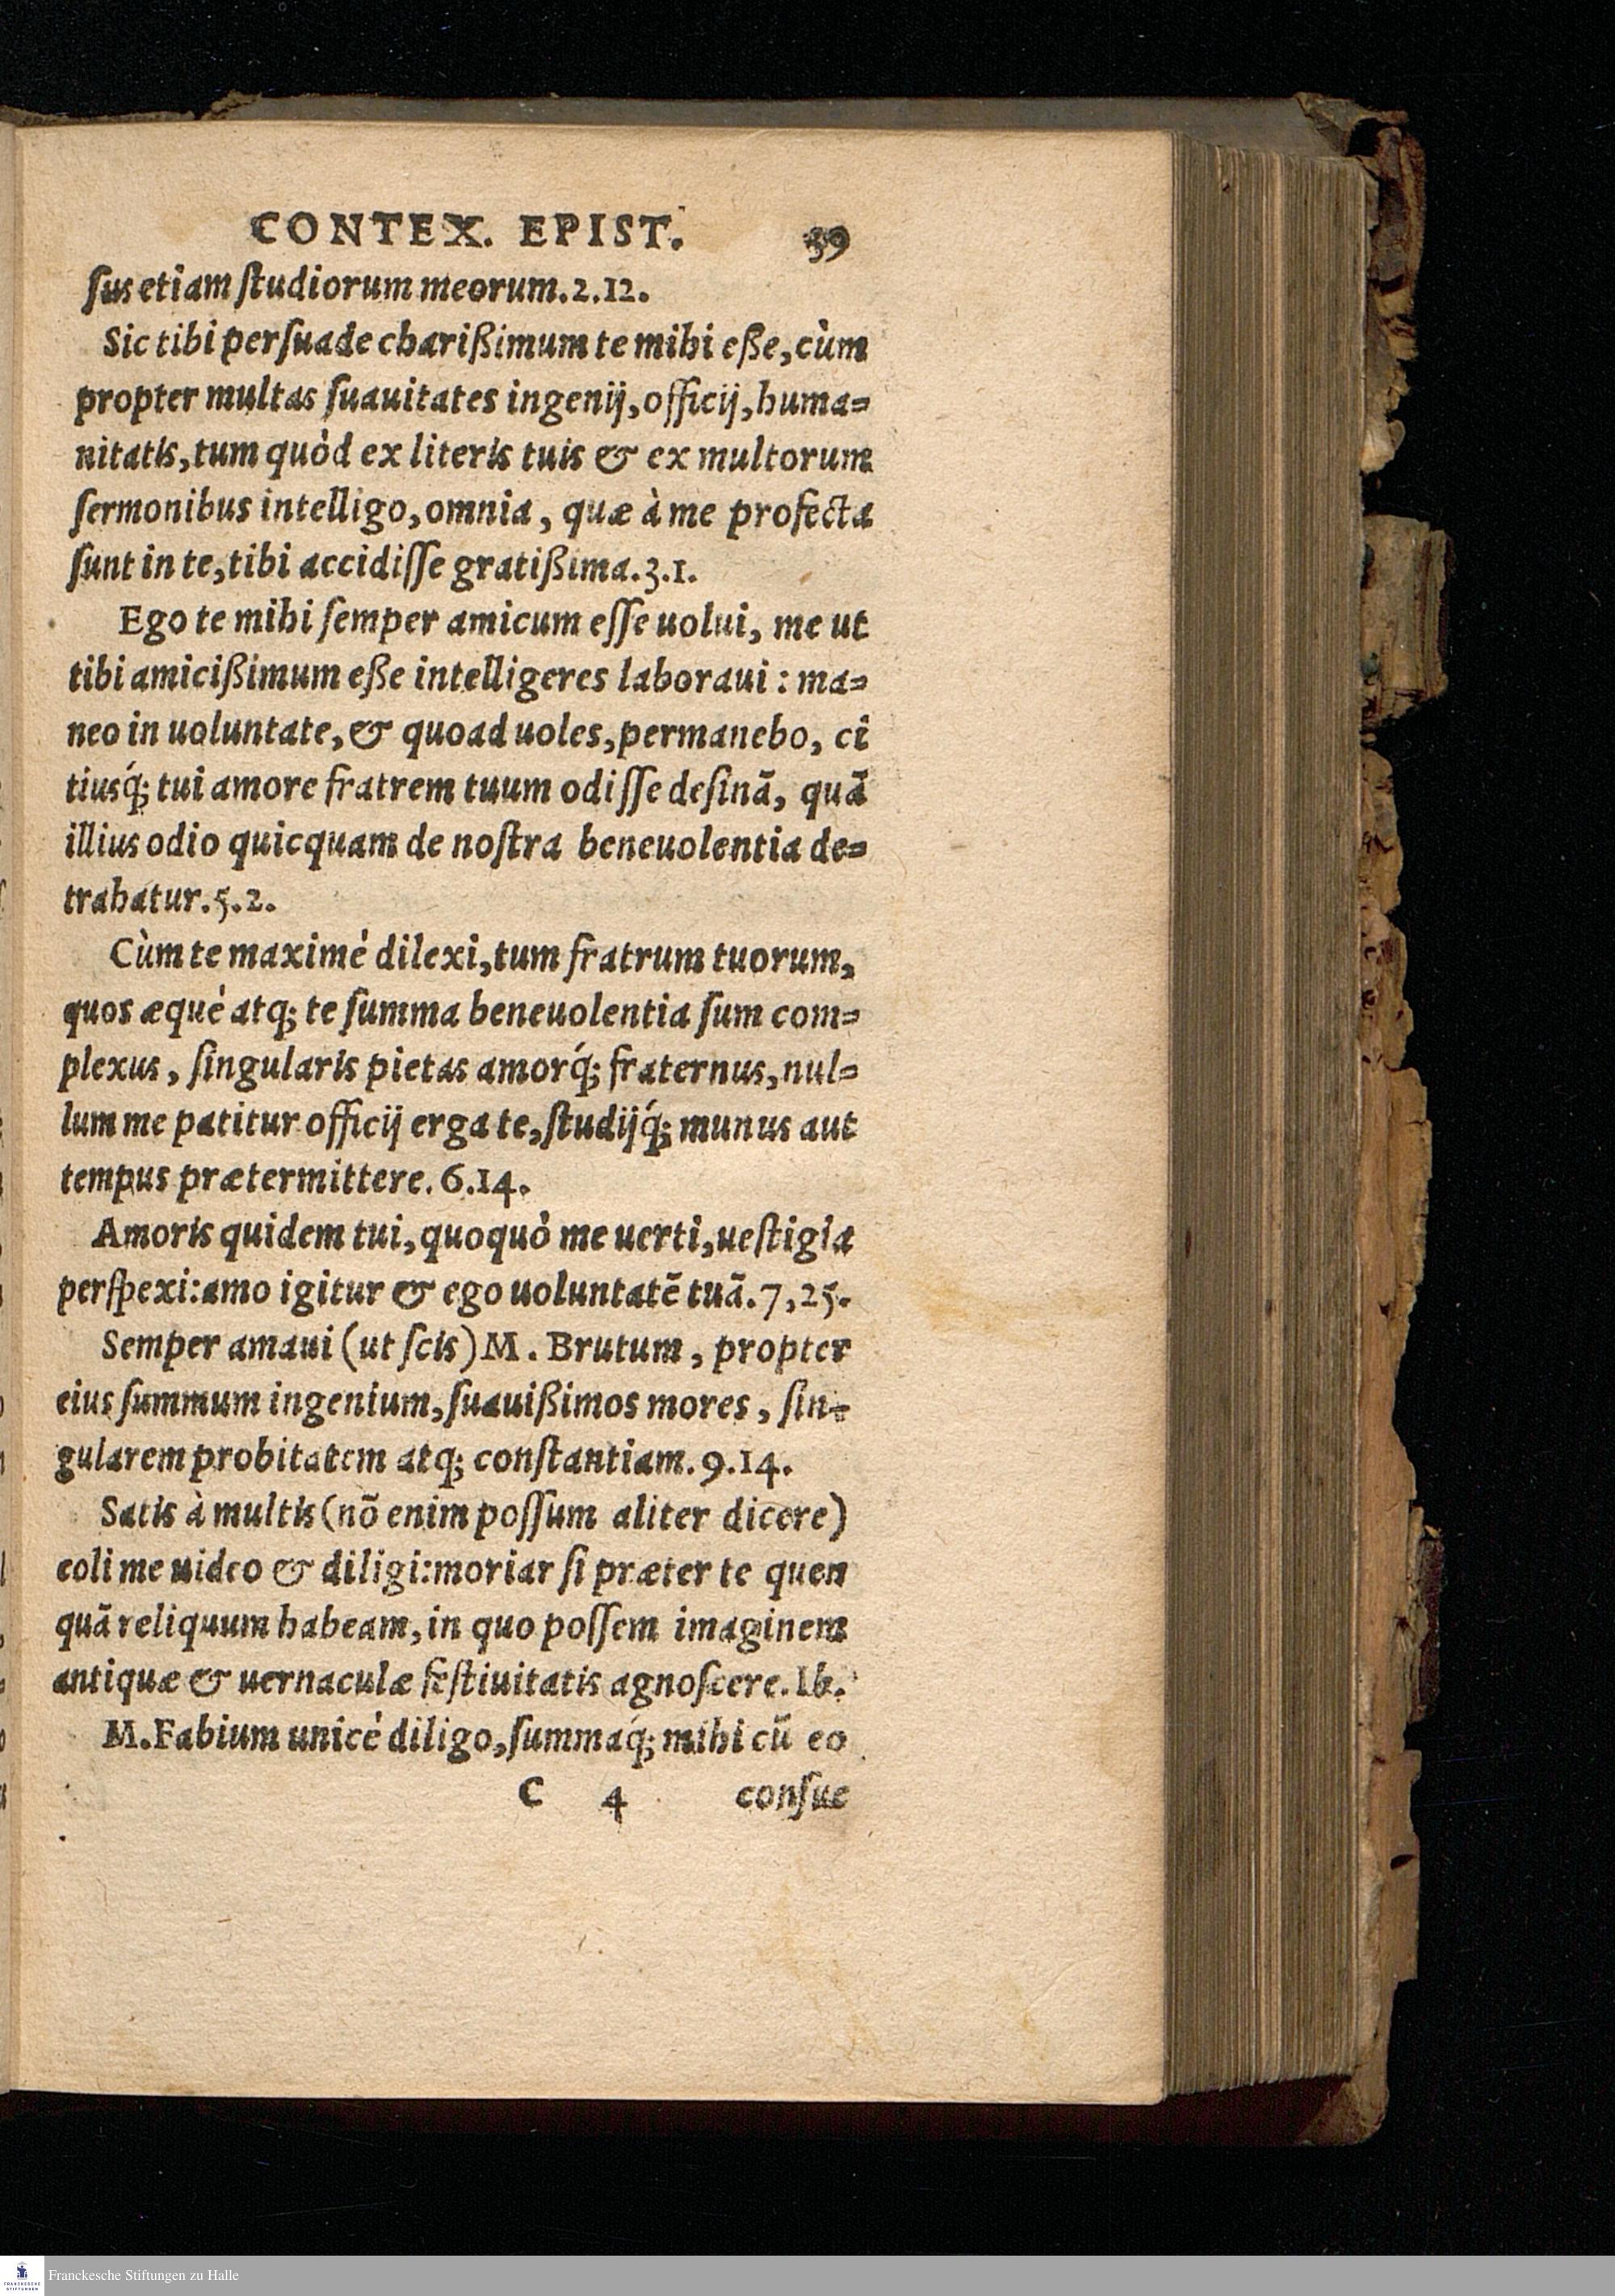 CONTEX. EPIST. 39
ſus etiam ſtudiorum meorum. 2. 12.
Sic tibi perſuade charißimum te mihi eße, cùm
propter multas ſuauitates ingenij, officij, huma=
nitatis, tum quòd ex literis tuis & ex multorum
ſermonibus intelligo, omnia, quæ à me profecta
ſunt in te, tibi accidiſſe gratißima. 3. 1.
Ego te mihi ſemper amicum eſſe uolui, me ut
tibi amicißimum eße intelligeres laboraui: ma=
neo in uoluntate, & quoad uoles, permanebo, ci
tiusq́; tui amore fratrem tuum odiſſe deſinã, quã
illius odio quicquam de noſtra beneuolentia de=
trahatur. 5. 2.
Cùm te maximè dilexi, tum fratrum tuorum,
quos æquè atq; te ſumma beneuolentia ſum com=
plexus, ſingularis pietas amorq́; fraternus, nul=
lum me patitur officij erga te, ſtudijq́; munus aut
tempus prætermittere. 6. 14.
Amoris quidem tui, quoquò me uerti, ueſtigia
perſpexi: amo igitur & ego uoluntatẽ tuã. 7, 25.
Semper amaui (ut ſcis) M. Brutum, propter
eius ſummum ingenium, ſuauißimos mores, ſin=
gularem probitatem atq; conſtantiam. 9. 14.
Satis à multis (nõ enim poſſum aliter dicere)
coli me uideo & diligi: moriar ſi præter te quen
quã reliquum habeam, in quo poſſem imaginem
antiquæ & uernaculæ feſtiuitatis agnoſcere. Ib.
M. Fabium unicè diligo, ſummaq́; mihi cũ eo
C 4 conſue
Franckesche Stiftungen zu Halle
FRANCKESCHE
STIFTUNGEN